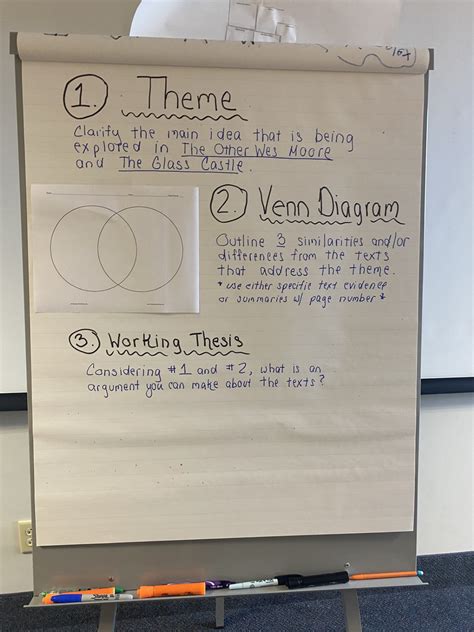 1. Theme
Clarify the main idea that is being
explored in The Other Wes Moore
and The Glass Castle.
2. Venn Diagram
Outline 3 similarities and/or
differences from the texts
that address the theme.
* use either specific text evidence
or summaries w/ page number *
3. Working Thesis
Considering #1 and #2, what is an
argument you can make about the texts?